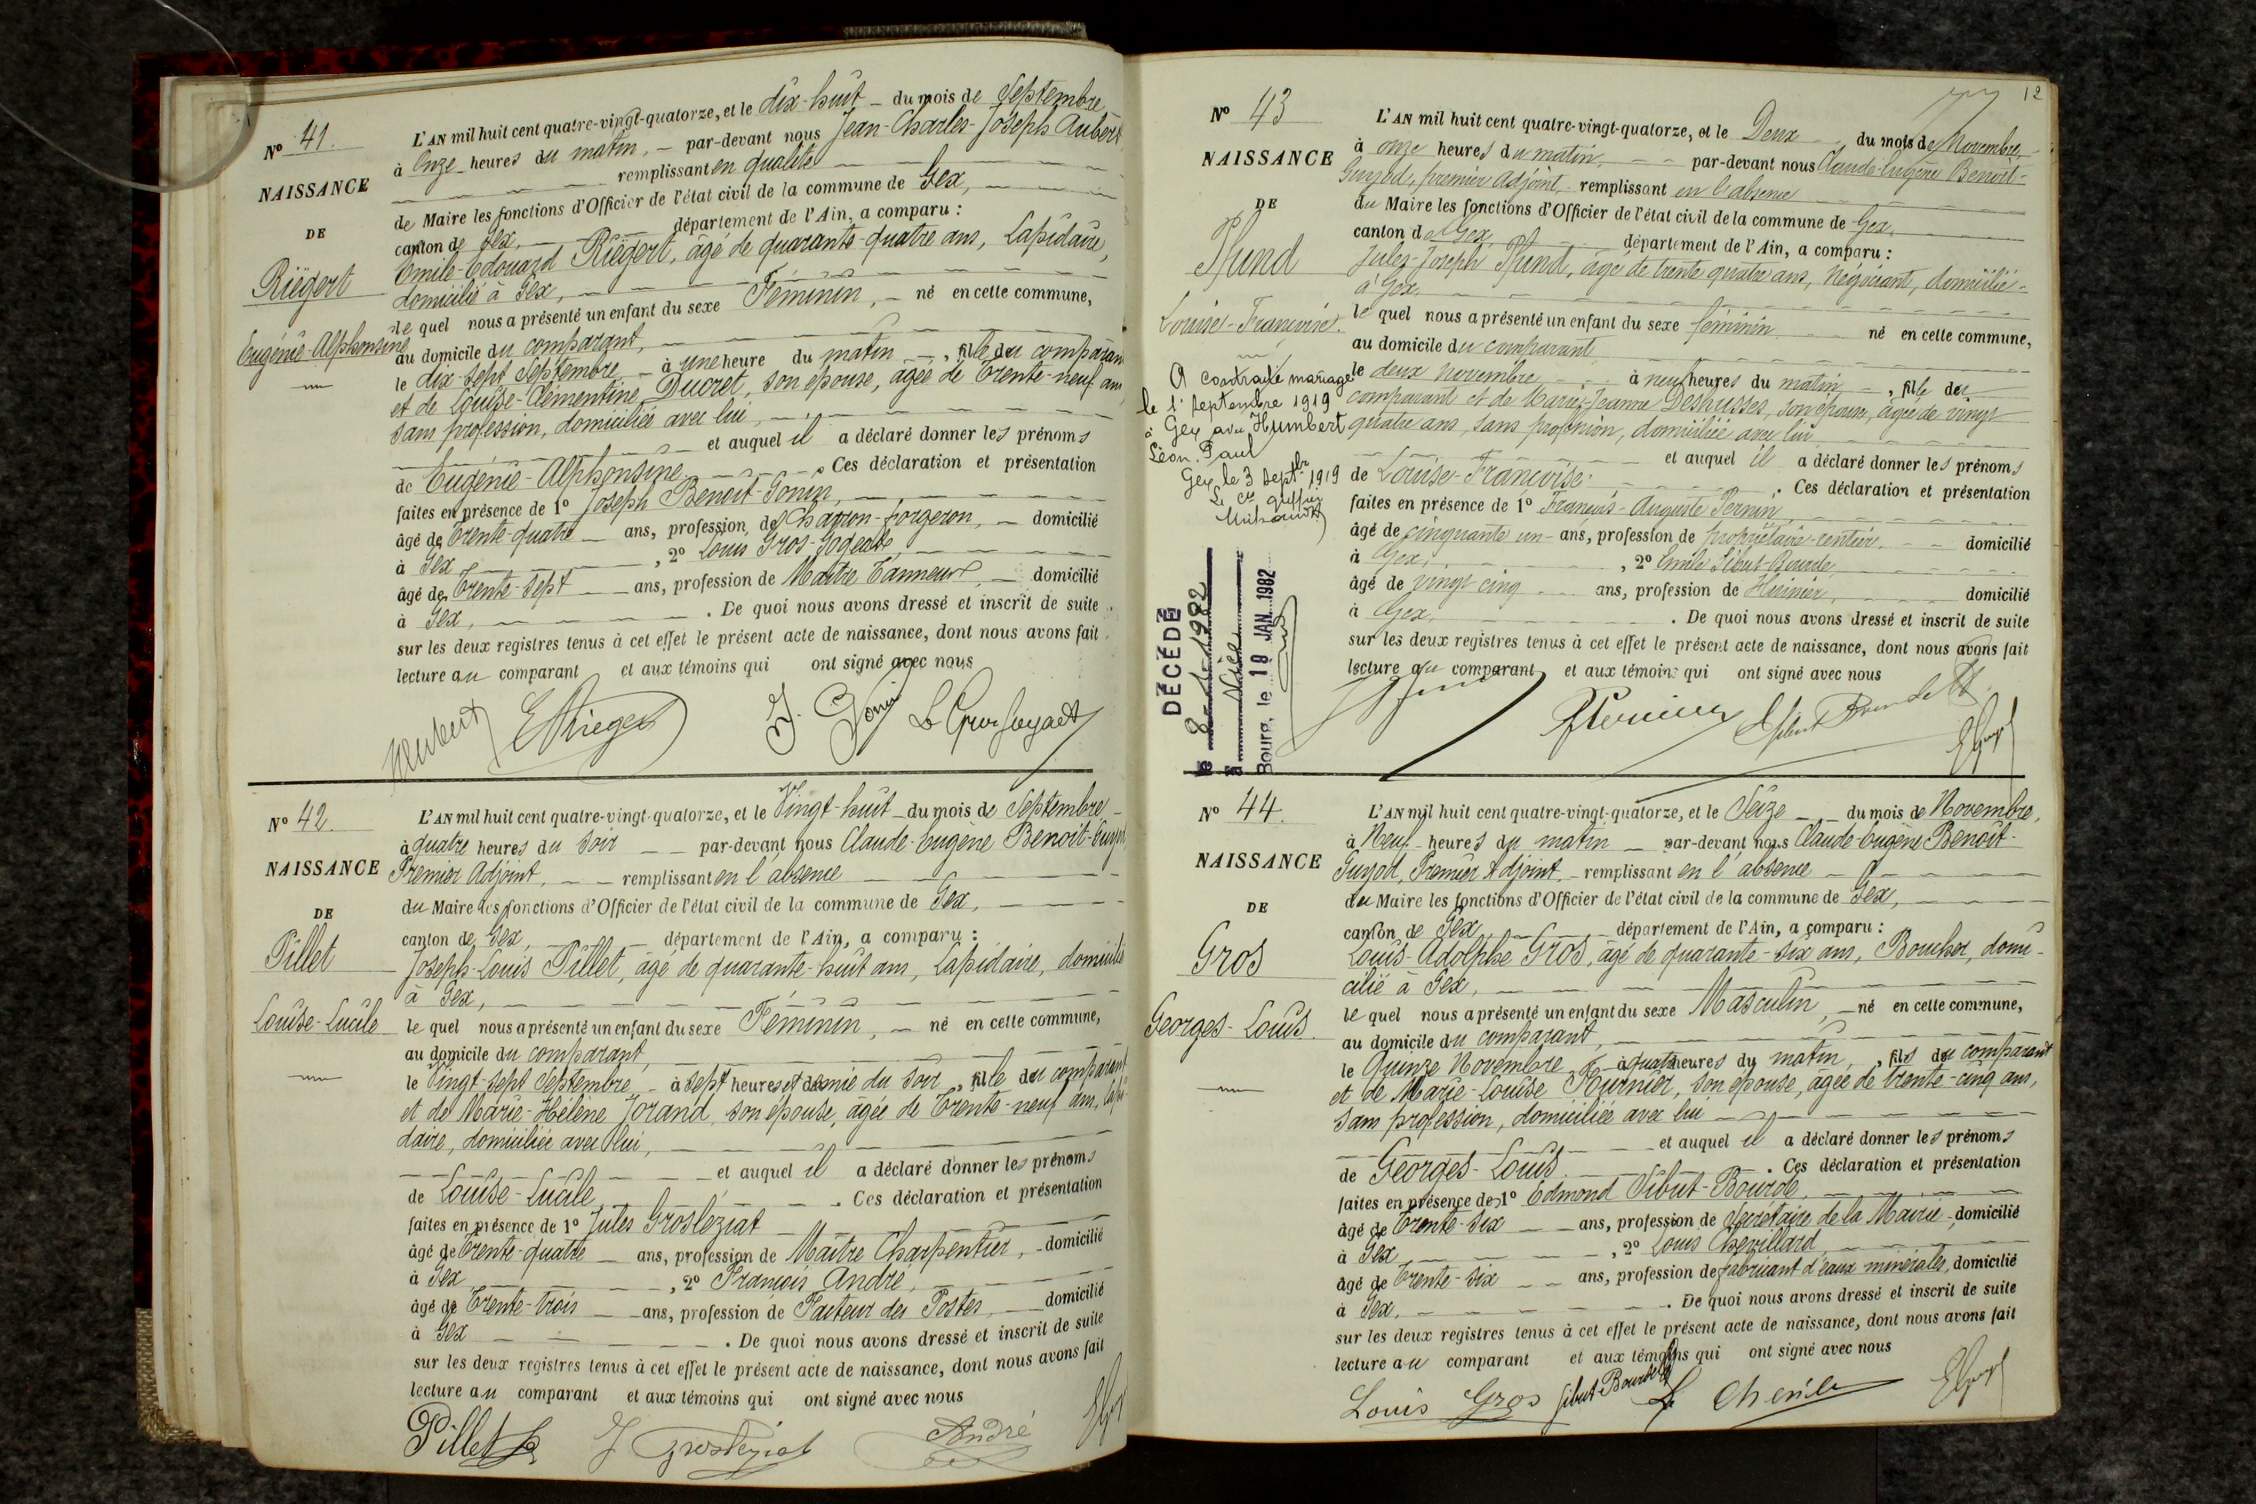 Nº 41.
NAISSANCE
DE
Riëgert
Eugénie-Alphonsine
L'AN mil huit cent quatre-vingt-quatorze, et le dix-huit du mois de Septembre
à Onze heures du matin, par-devant nous Jean-Charles-Joseph Aubert
remplissant en qualité
de Maire les fonctions d'Officier de l'état civil de la commune de Gex,
canton de Gex, département de l'Ain, a comparu :
Emile-Edouard Riëgert, âgé de quarante-quatre ans, Lapidaire,
domicilié à Gex,
le quel nous a présenté un enfant du sexe Féminin, né en cette commune,
au domicile du comparant,
le dix-sept Septembre à une heure du matin, fille du comparant
et de Louise-Clémentine Ducret, son épouse, âgée de Trente-neuf ans
sans profession, domiciliée avec lui,
et auquel il a déclaré donner les prénoms
de Eugénie-Alphonsine. Ces déclaration et présentation
faites en présence de 1º Joseph Benoit-Gonin,
âgé de Trente-quatre ans, profession de Charron-forgeron, domicilié
à Gex, 2º Louis Gros-Gogeat,
âgé de Trente-sept ans, profession de Maître Tanneur, domicilié
à Gex, . De quoi nous avons dressé et inscrit de suite
sur les deux registres tenus à cet effet le présent acte de naissance, dont nous avons fait
lecture au comparant et aux témoins qui ont signé avec nous
Aubert E Rieger J. Gonin
Nº 42.
NAISSANCE
DE
Pillet
Louise-Lucile
L'AN mil huit cent quatre-vingt-quatorze, et le Vingt-huit du mois de Septembre
à quatre heures du soir par-devant nous Claude-Eugène Benoit-Guyod
Premier Adjoint, remplissant en l'absence
du Maire les fonctions d'Officier de l'état civil de la commune de Gex,
canton de Gex, département de l'Ain, a comparu :
Joseph-Louis Pillet, âgé de quarante-huit ans, Lapidaire, domicilié
à Gex,
le quel nous a présenté un enfant du sexe Féminin, né en cette commune,
au domicile du comparant,
le Vingt-sept Septembre à sept heures et demie du soir, fille du comparant
et de Marie-Hélène Jorand, son épouse, âgée de Trente-neuf ans, lapi-
daire, domiciliée avec lui,
et auquel il a déclaré donner les prénoms
de Louise-Lucile. Ces déclaration et présentation
faites en présence de 1º Jules Grosleziat
âgé de Trente-quatre ans, profession de Maître Charpentier, domicilié
à Gex, 2º François André,
âgé de Trente-trois ans, profession de Facteur des Postes, domicilié
à Gex . De quoi nous avons dressé et inscrit de suite
sur les deux registres tenus à cet effet le présent acte de naissance, dont nous avons fait
lecture au comparant et aux témoins qui ont signé avec nous
Pillet L J Grosleziat André
12
Nº 43
NAISSANCE
DE
Pfund
Louise-Françoise.
A contracté mariage
le 1er Septembre 1919
à Gex avec Humbert
Léon Paul
Gex le 3 Septbre 1919
DÉCÉDÉ
le 8-1-1982
à Nice
Bourg, le 18 JAN. 1982
L'AN mil huit cent quatre-vingt-quatorze, et le Deux du mois de Novembre,
à onze heures du matin, par-devant nous Claude-Eugène Benoit-
Guyod, premier adjoint, remplissant en l'absence
du Maire les fonctions d'Officier de l'état civil de la commune de Gex,
canton de Gex département de l'Ain, a comparu :
Jules-Joseph Pfund, âgé de trente quatre ans, Négociant, domicilié
à Gex,
le quel nous a présenté un enfant du sexe féminin né en cette commune,
au domicile du comparant
le deux novembre à neuf heures du matin, fille du
comparant et de Marie-Jeanne Deshusses, son épouse, âgée de vingt
quatre ans, sans profession, domiciliée avec lui
et auquel il a déclaré donner les prénoms
de Louise-Françoise. Ces déclaration et présentation
faites en présence de 1º François-Auguste Pernin,
âgé de cinquante un ans, profession de propriétaire-rentier, domicilié
à Gex, 2º Emile Sibut-Bourde,
âgé de vingt cinq ans, profession de Huissier, domicilié
à Gex, . De quoi nous avons dressé et inscrit de suite
sur les deux registres tenus à cet effet le présent acte de naissance, dont nous avons fait
lecture au comparant et aux témoins qui ont signé avec nous
Nº 44.
NAISSANCE
DE
Gros
Georges-Louis
L'AN mil huit cent quatre-vingt-quatorze, et le Seize du mois de Novembre,
à Neuf heures du matin par-devant nous Claude-Eugène Benoit-
Guyod, Premier Adjoint, remplissant en l'absence
du Maire les fonctions d'Officier de l'état civil de la commune de Gex,
canton de Gex, département de l'Ain, a comparu :
Louis-Adolphe Gros, âgé de quarante-six ans, Boucher, domi-
cilié à Gex,
le quel nous a présenté un enfant du sexe Masculin, né en cette commune,
au domicile du comparant,
le Quinze Novembre à quatre heures du matin, fils du comparant
et de Marie-Louise Fournier, son épouse, âgée de trente-cinq ans,
sans profession, domiciliée avec lui
et auquel il a déclaré donner les prénoms
de Georges-Louis. Ces déclaration et présentation
faites en présence de 1º Edmond Sibut-Bourde,
âgé de Trente-six ans, profession de Secrétaire de la Mairie, domicilié
à Gex, 2º Louis Chevillard
âgé de Trente-six ans, profession de fabricant d'eaux minérales, domicilié
à Gex, . De quoi nous avons dressé et inscrit de suite
sur les deux registres tenus à cet effet le présent acte de naissance, dont nous avons fait
lecture au comparant et aux témoins qui ont signé avec nous
Louis Gros Sibut-Bourde